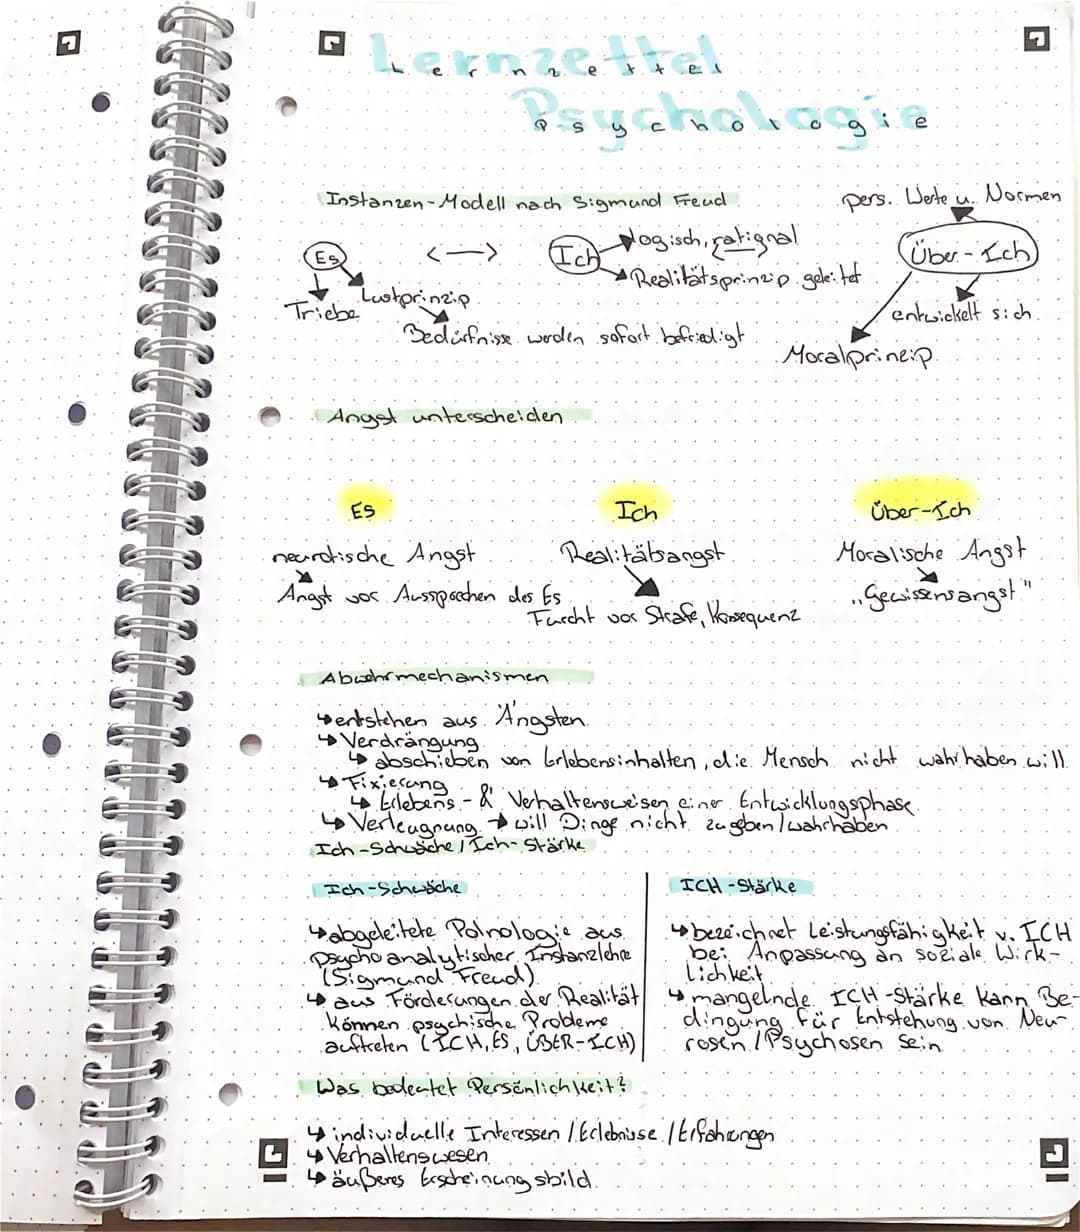 Lernzettel
Psychologie
Instanzen-Modell nach Sigmund Freud
pers. Werte u. Normen
Es
Ich
logisch, rational
Über-Ich
Triebe
Lustprinzip
Realitätsprinzip geleitet
entwickelt sich
Bedürfnisse werden sofort befriedigt
Moralprinzip
Angst unterscheiden
Es
Ich
Über-Ich
neurotische Angst
Realitätsangst
Moralische Angst
Angst vor Aussprechen des Es
Furcht vor Strafe, Konsequenz
„Gewissensangst"
Abwehrmechanismen
↳ entstehen aus Ängsten
↳ Verdrängung
↳ abschieben von Erlebensinhalten, die Mensch nicht wahrhaben will
↳ Fixierung
↳ Erlebens- & Verhaltensweisen einer Entwicklungsphase
↳ Verleugnung → will Dinge nicht zugeben/wahrhaben
Ich-Schwäche / Ich-Stärke
Ich-Schwäche
↳ abgeleitete Patnologie aus
psychoanalytischer Instanzlehre
(Sigmund Freud)
↳ aus Förderungen der Realität
können psychische Probleme
auftreten (ICH, ES, ÜBER-ICH)
ICH-Stärke
↳ bezeichnet Leistungsfähigkeit v. ICH
bei Anpassung an soziale Wirk-
lichkeit
↳ mangelnde ICH-Stärke kann Be-
dingung für Entstehung von Neu-
rosen/Psychosen sein
Was bedeutet Persönlichkeit?
↳ individuelle Interessen / Erlebnisse / Erfahrungen
↳ Verhaltenswesen
↳ äußeres Erscheinungsbild